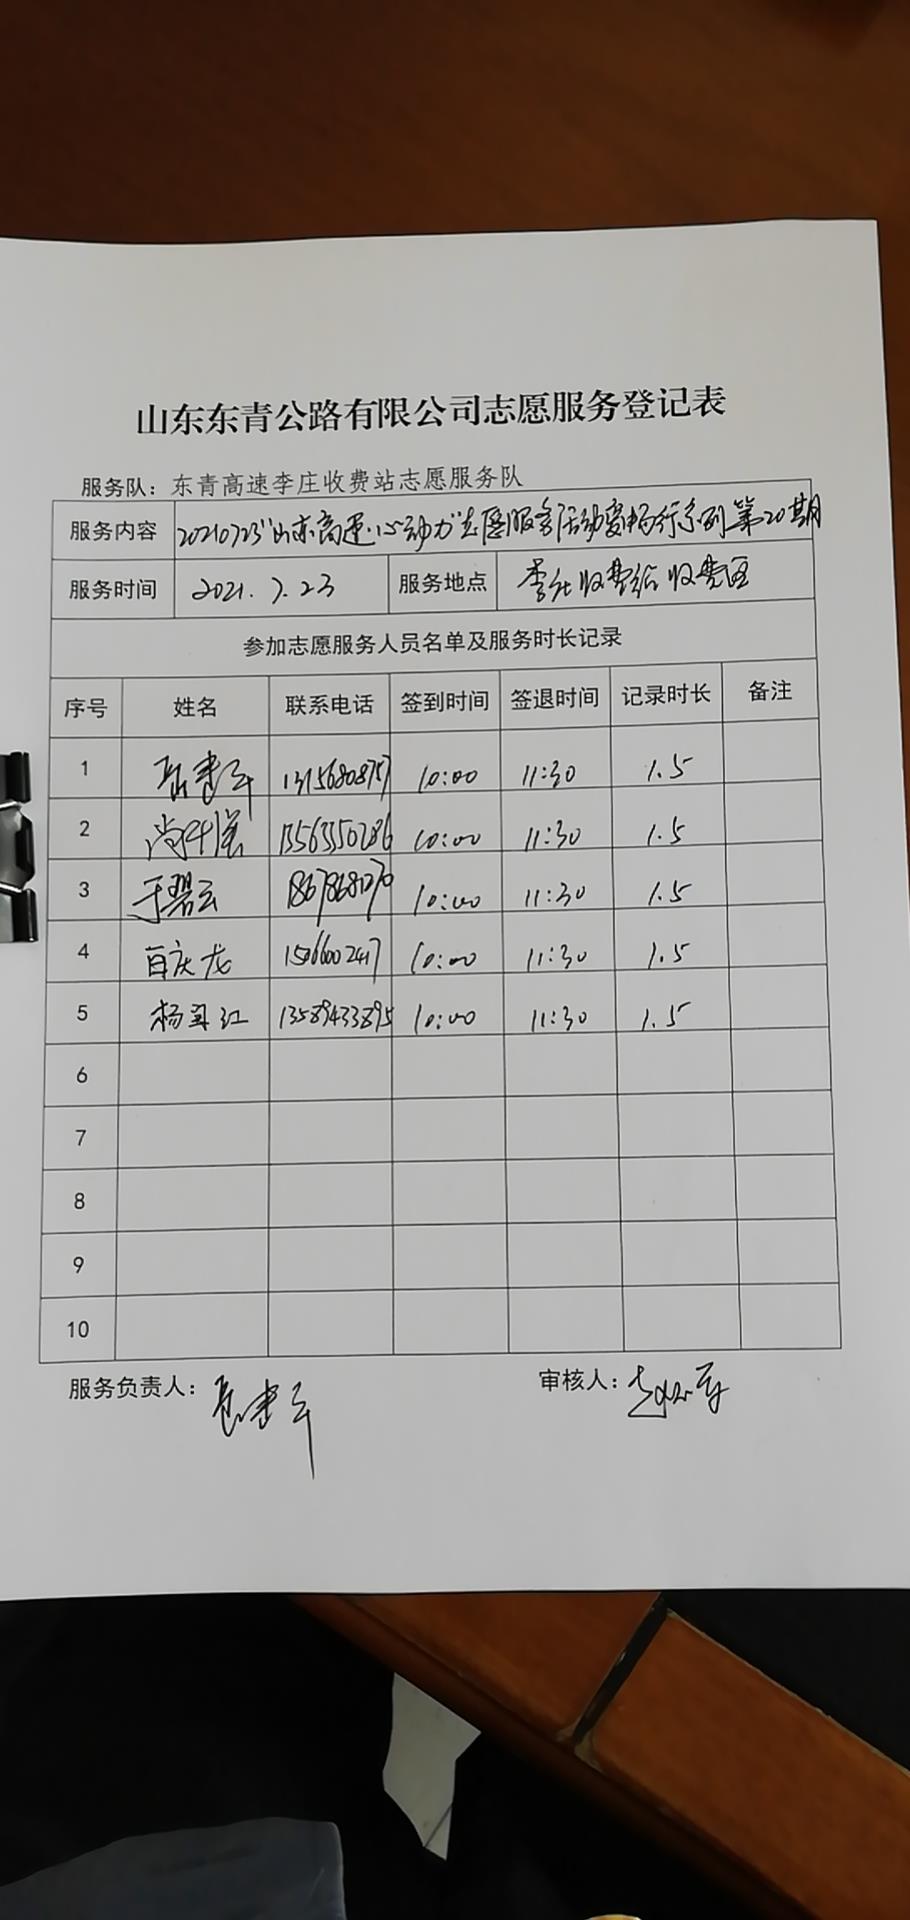 山东东青公路有限公司志愿服务登记表
服务队：东青高速李庄收费站志愿服务队
服务内容 20210723"山东高速·心动力"志愿服务活动 畅行系列第20期
服务时间 2021.7.23 服务地点 收费站收费区
参加志愿服务人员名单及服务时长记录
序号 姓名 联系电话 签到时间 签退时间 记录时长 备注
1 10:00 11:30 1.5
2 13563550286 10:00 11:30 1.5
3 于碧云 10:00 11:30 1.5
4 庆龙 15066002417 10:00 11:30 1.5
5 杨 江 13589433895 10:00 11:30 1.5
6
7
8
9
10
服务负责人： 审核人：